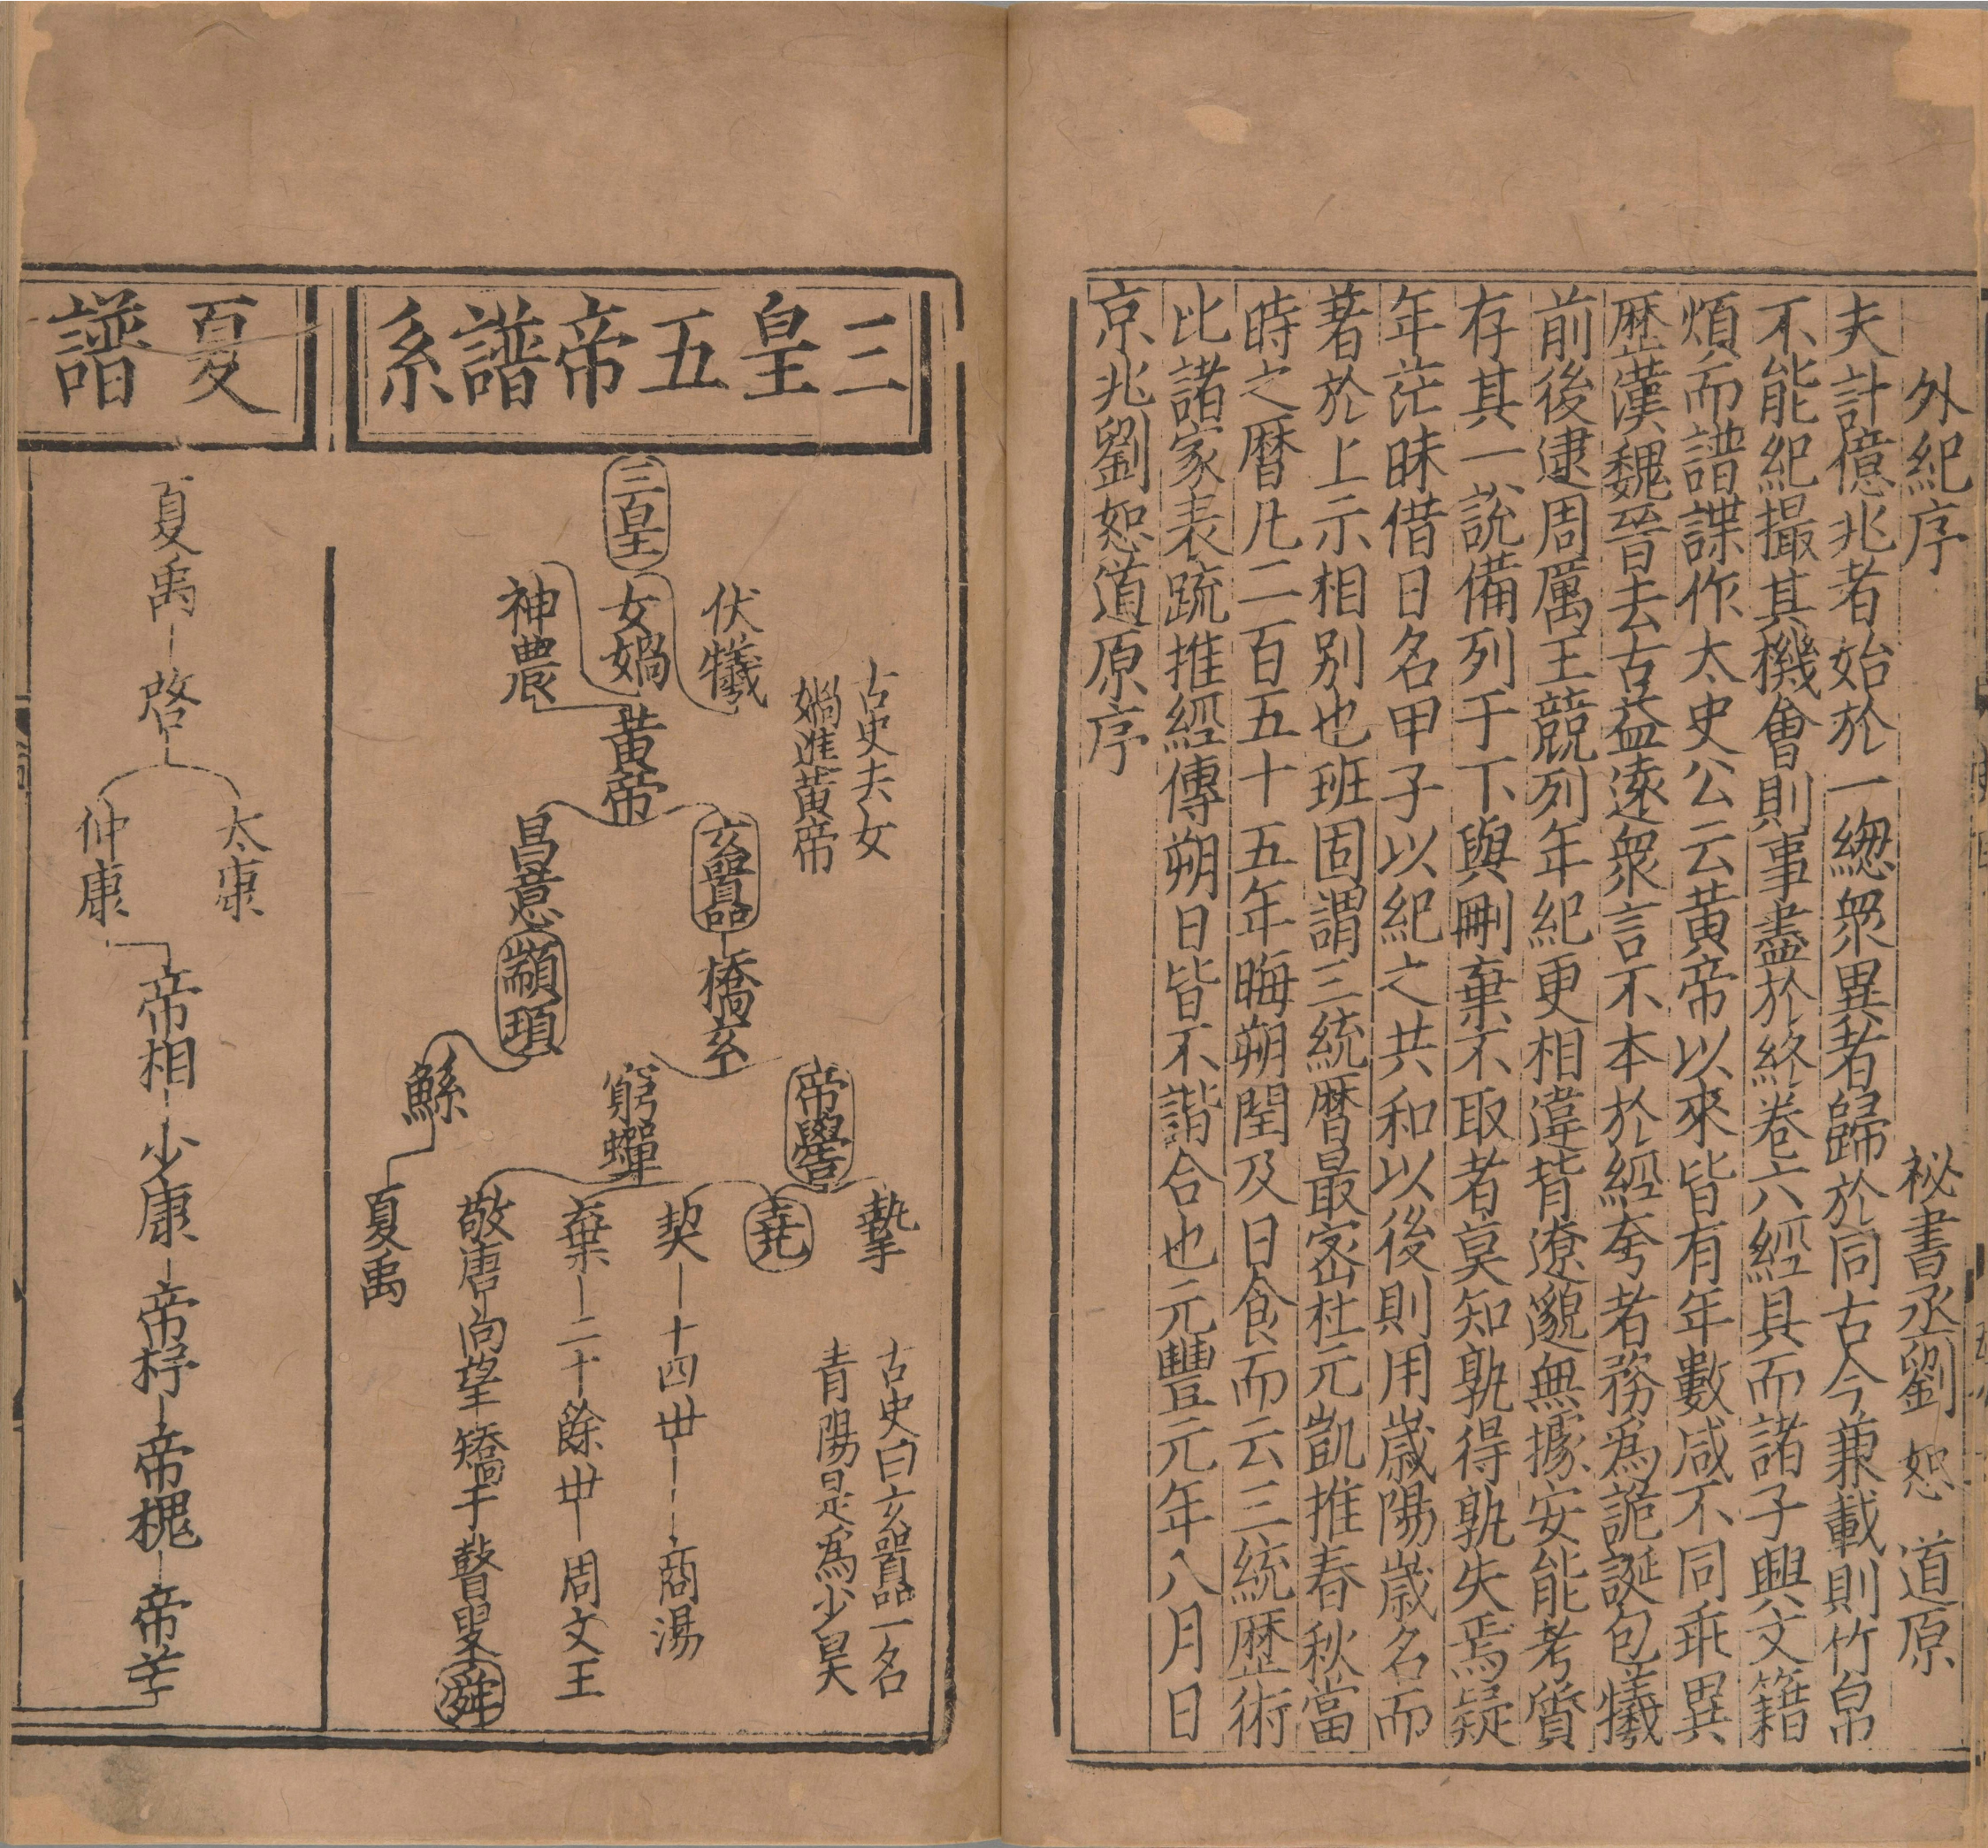 外紀序
秘書丞劉 恕 道原
夫計億兆者始於一緫衆異者歸於同古今兼載則竹帛
不能紀撮其機會則事盡於終卷六經具而諸子興文籍
煩而譜諜作太史公云黃帝以來皆有年數咸不同乖異
歴漢魏晉去古益遠衆言不本於經夸者務爲詭誕包犧
前後逮周厲王競列年紀更相違背遼邈無據安能考質
存其一說備列于下與刪棄不取者莫知孰得孰失焉疑
年茫昧借日名甲子以紀之共和以後則用歳陽歳名而
著於上示相别也班固謂三統曆最宻杜元凱推春秋當
時之曆凡二百五十五年晦朔閏及日食而云三統歴術
比諸家表䟽推經傳朔日皆不諧合也元豐元年八月日
京兆劉恕道原序
三皇五帝譜系
三皇
伏犧
女媧
神農
古史夫女
媧進黃帝
黃帝
玄囂
昌意
顓頊
橋玄
帝嚳
窮蟬
鯀
摯
堯
契一十四丗一商湯
棄一二十餘丗一周文王
敬唐向望矯于瞽叟舜
夏禹
古史曰玄囂一名
青陽是爲少昊
夏譜
夏禹
啓
太康
仲康
帝相
少康
帝杼
帝槐
帝芒